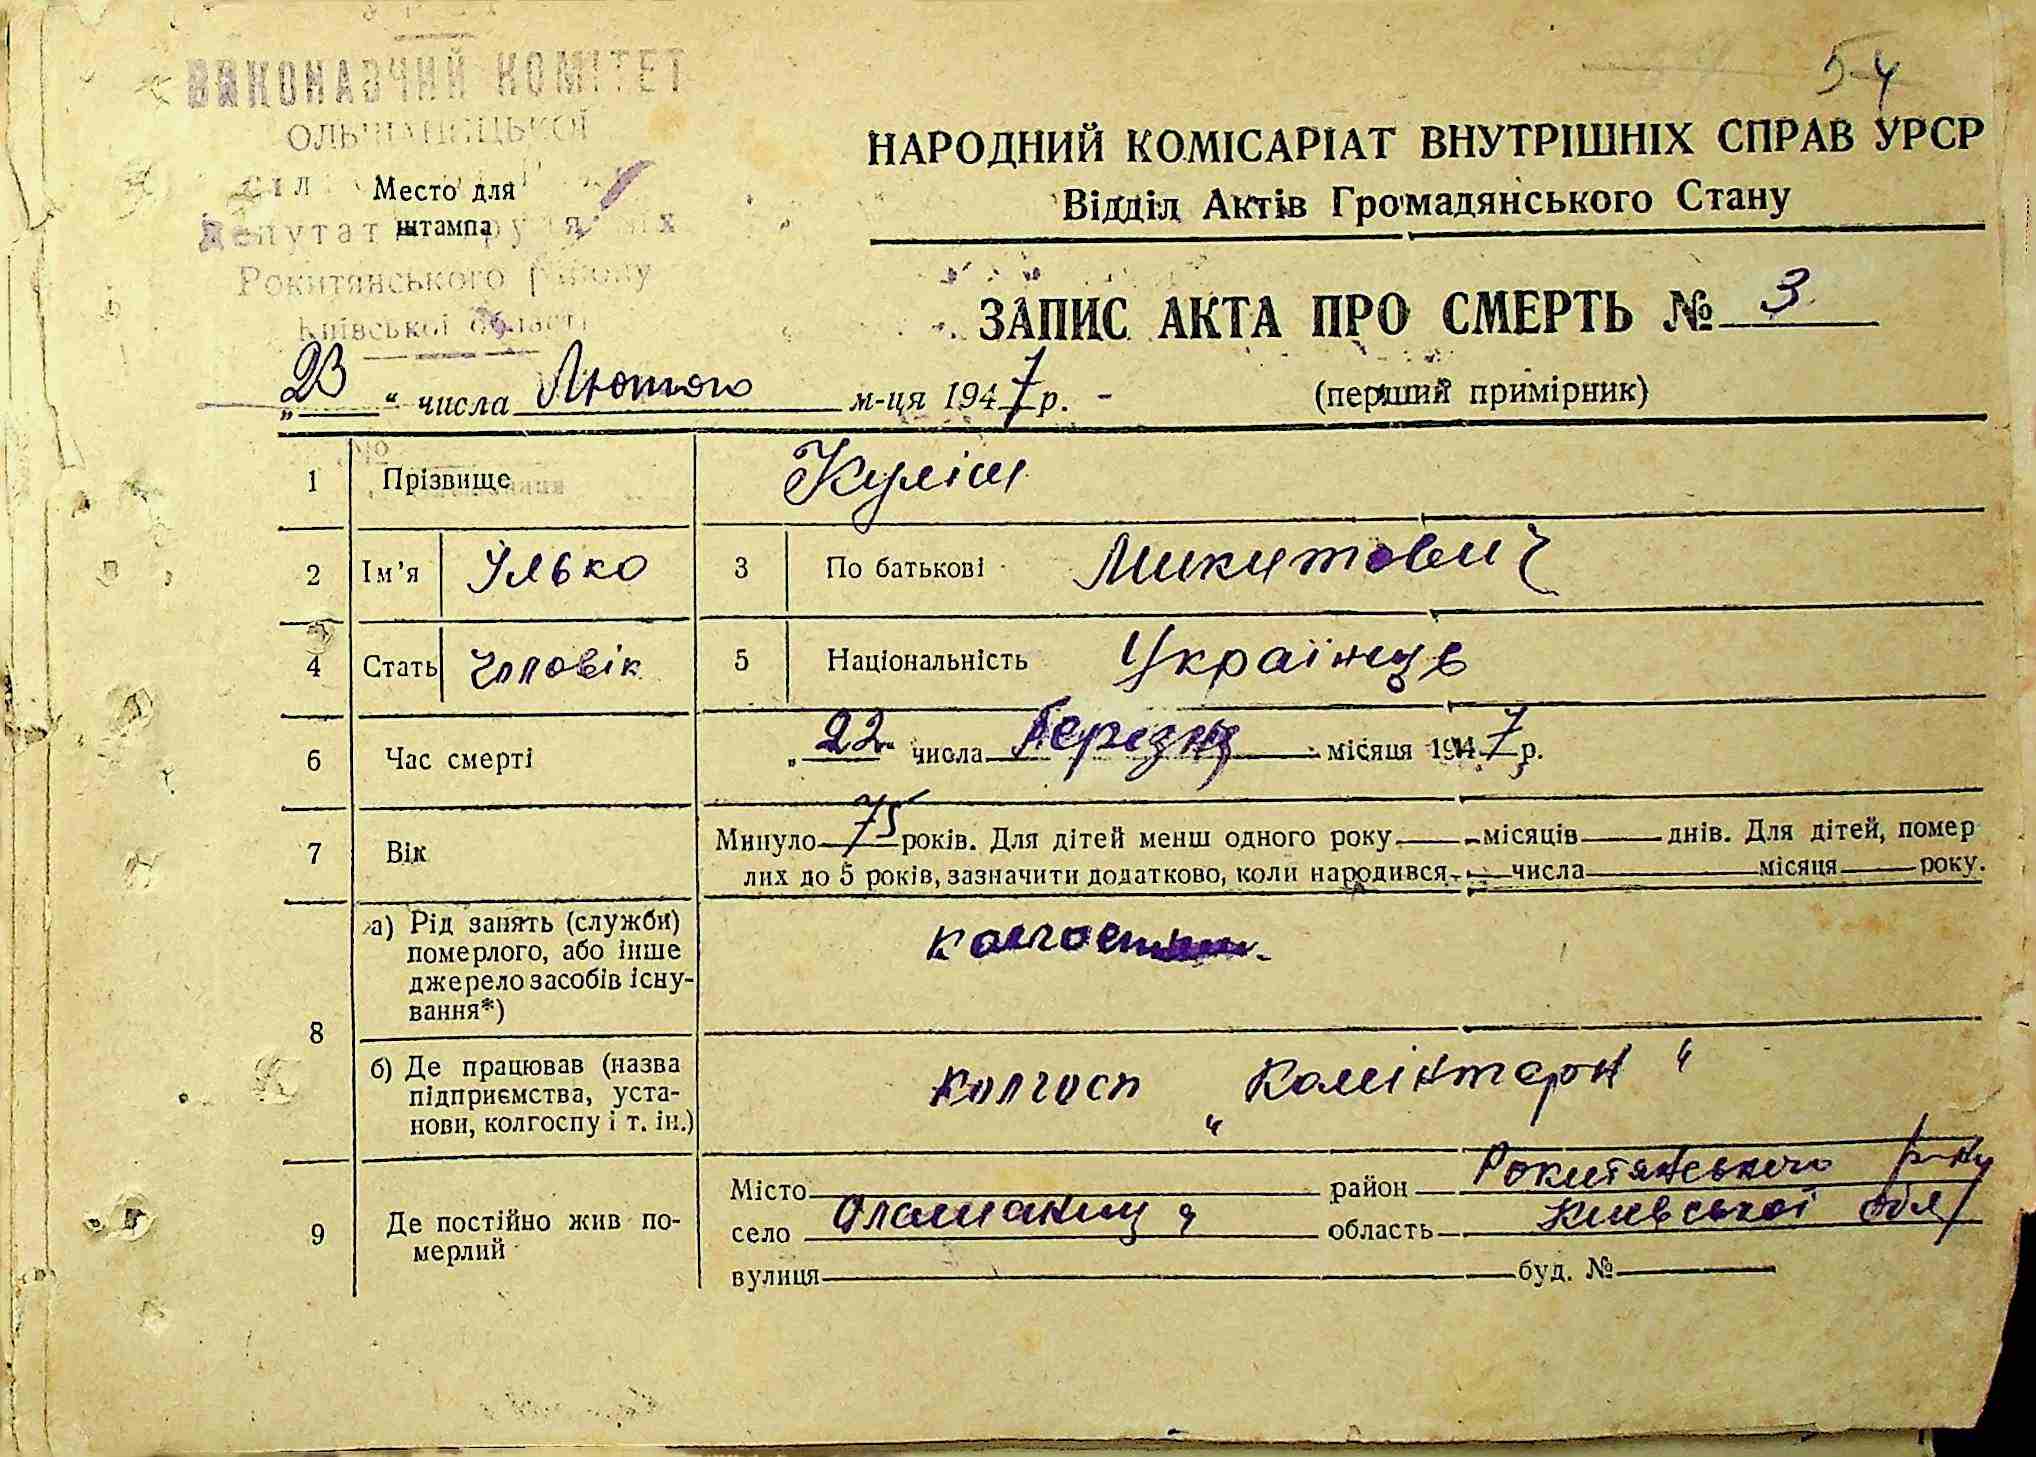 54
ВИКОНАВЧИЙ КОМІТЕТ
ОЛЬШАНИЦЬКОЇ
Место для
штампа
депутат
Рокитянського району
Київської області
НАРОДНИЙ КОМІСАРІАТ ВНУТРІШНІХ СПРАВ УРСР
Відділ Актів Громадянського Стану
ЗАПИС АКТА ПРО СМЕРТЬ № 3
„23“ числа Лютого м-ця 1947 р. -
(перший примірник)
1 Прізвище Куліш
2 Ім’я Улько 3 По батькові Микитович
4 Стать Чоловік 5 Національність Українець
6 Час смерті „22 числа Березня місяця 1947 р.
7 Вік Минуло 75 років. Для дітей менш одного року місяців днів. Для дітей, помер
лих до 5 років, зазначити додатково, коли народився числа місяця року.
8 а) Рід занять (служби)
померлого, або інше
джерело засобів існу-
вання*)
б) Де працював (назва
підприємства, уста-
нови, колгоспу і т. ін.)
колгосп „Комінтерн“
9 Де постійно жив по-
мерлий
Місто район Рокитянського р-ну
село область Киевської обл
вулиця буд. №